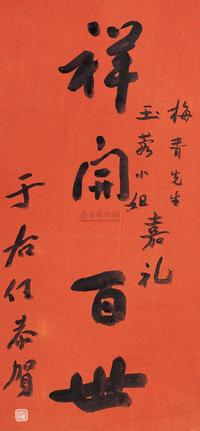 梅青先生
玉蓉小姐
嘉礼
祥開百世
于右任恭賀